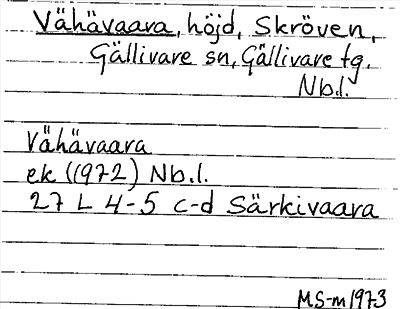 Vähävaara, höjd, Skröven,
Gällivare sn, Gällivare tg.
Nb.l.
Vähävaara
ek (1972) Nb.l.
27 L 4-5 c-d Särkivaara
MS-m 1973